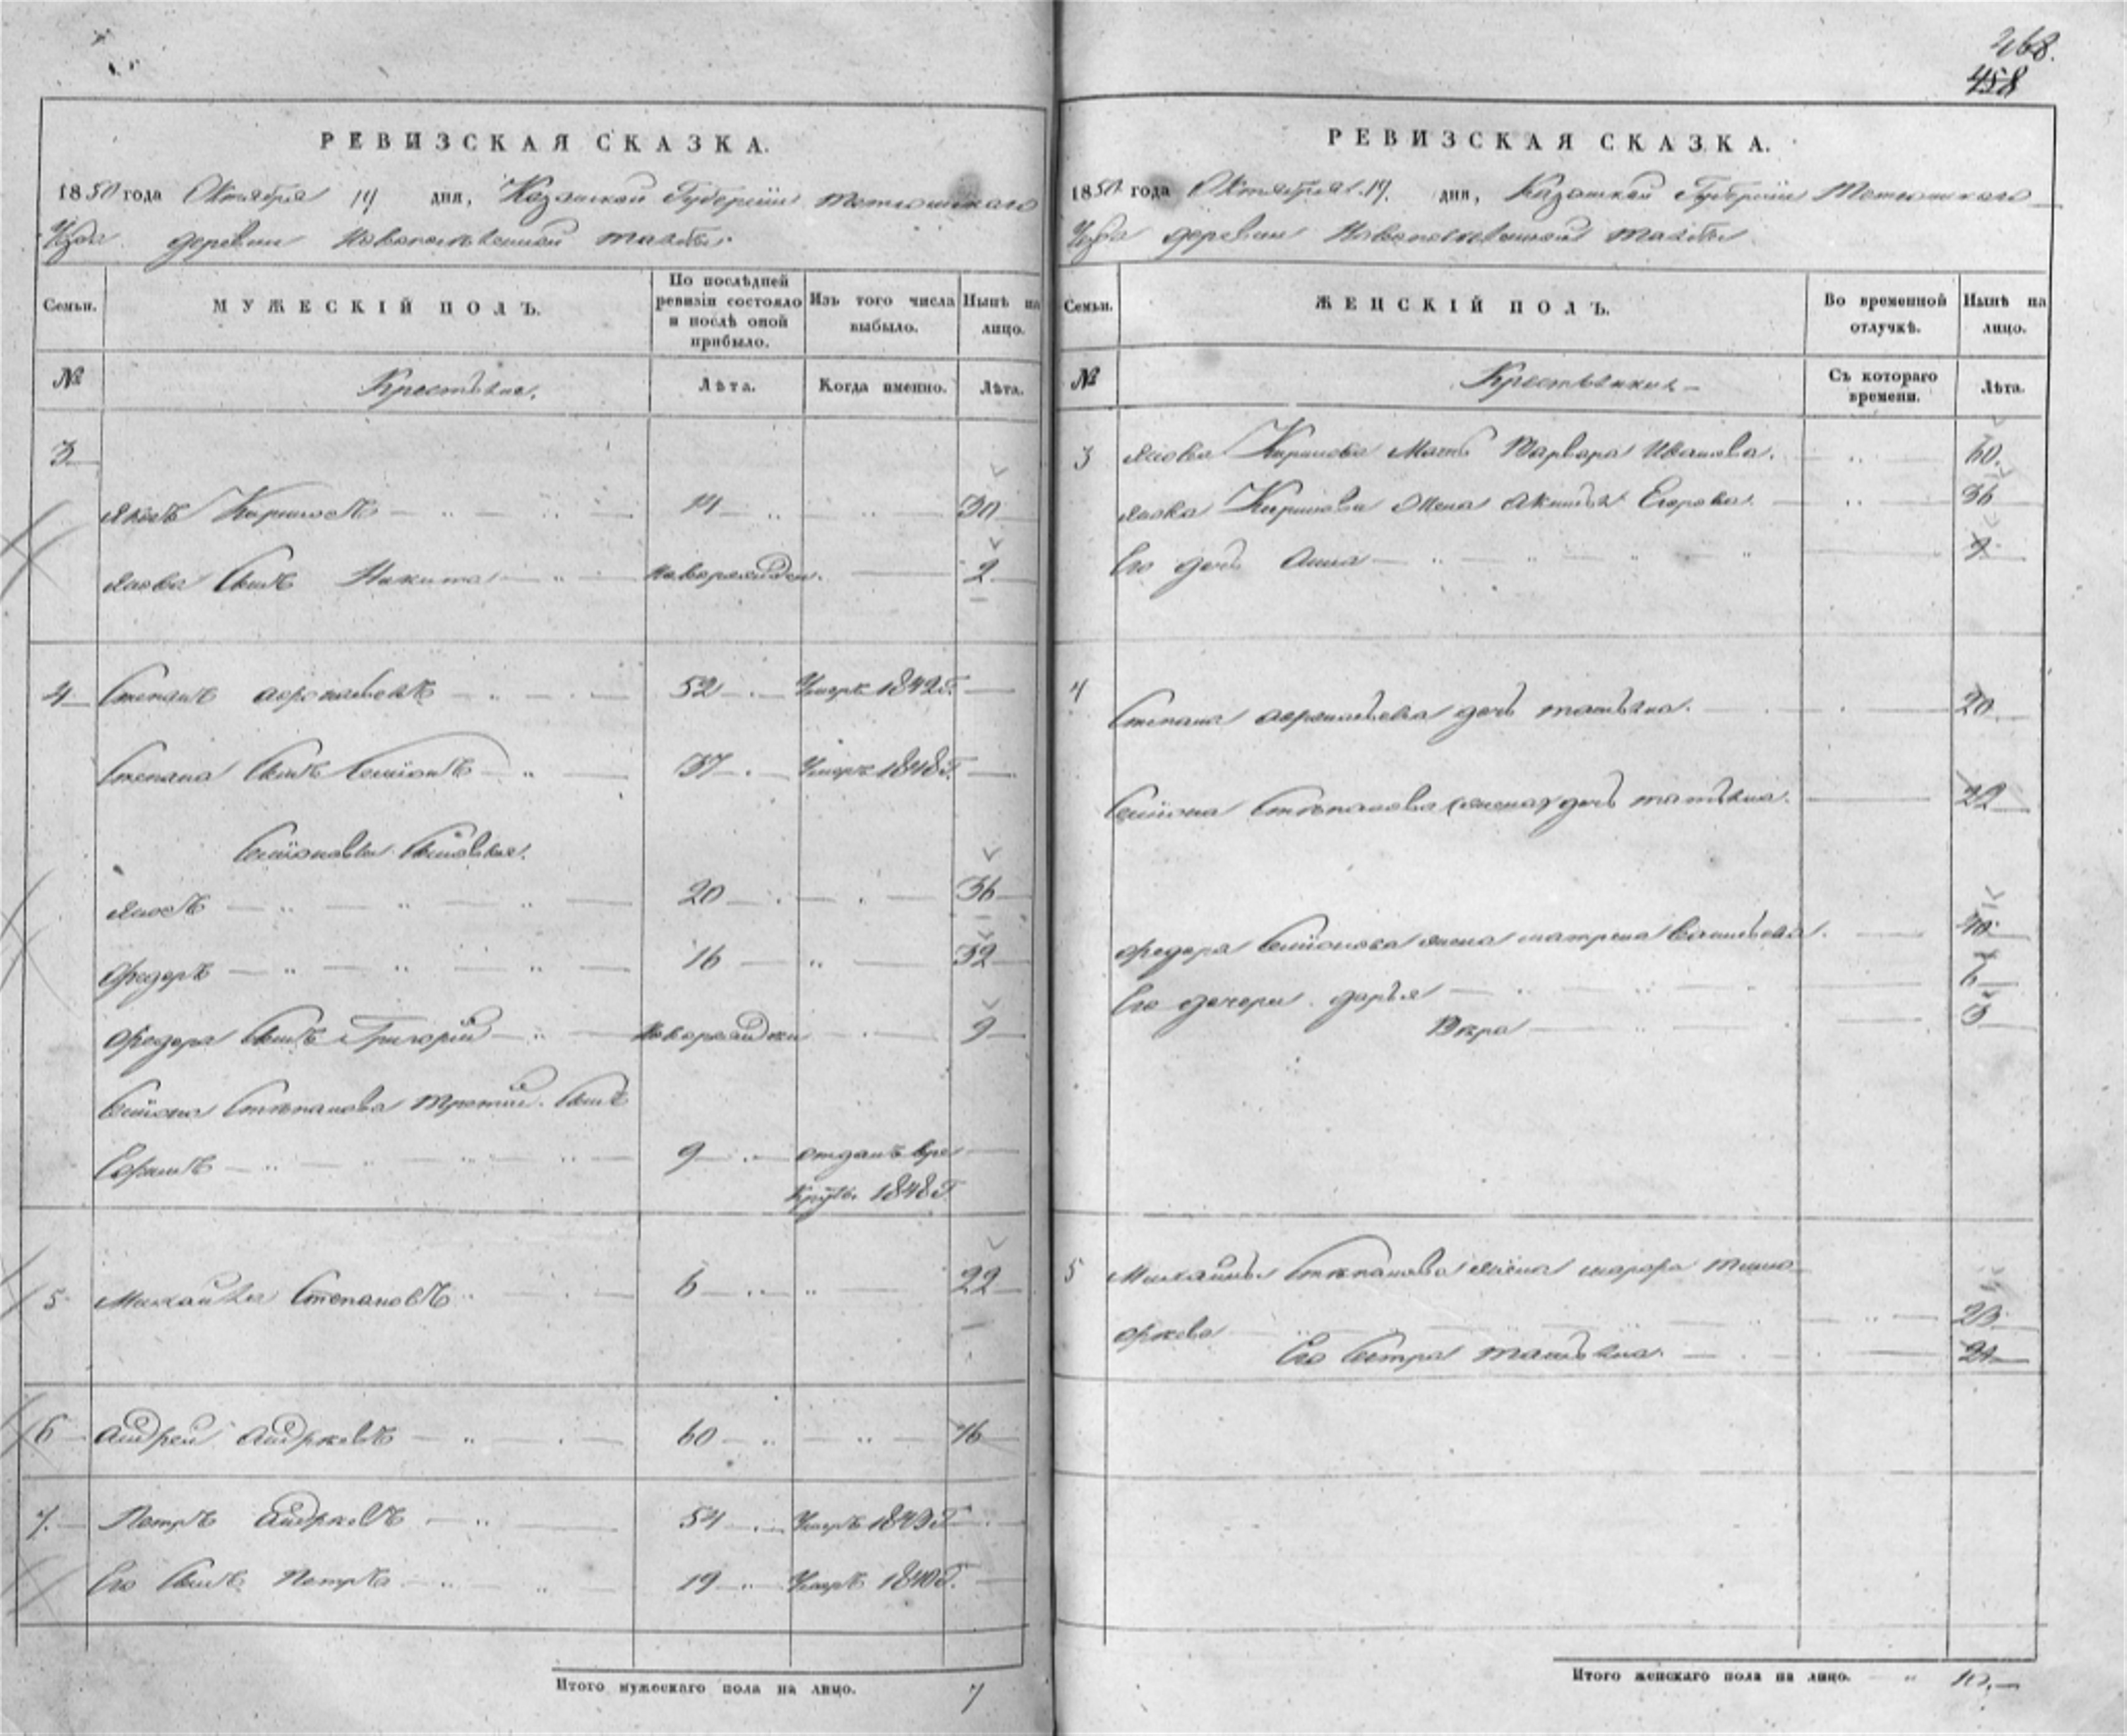 268.
458
РЕВИЗСКАЯ СКАЗКА.
1850 года Октября 19 дня, Казанской Губернiи Тетюшскаго
Уѣзда деревни Новопоселенной
Семьи.
МУЖЕСКIЙ ПОЛЪ.
По послѣдней ревизiи состояло и послѣ оной прибыло.
Изъ того числа выбыло.
Нынѣ на лицо.
№
Крестьяне.
Лѣта.
Когда именно.
Лѣта.
3
Яковъ Кириловъ 14 30
Якова Сынъ Никита новорожден. 2
4 Степанъ Афонасьевъ 52 Умеръ 1842 г.
Степана Сынъ Семiонъ 37 Умеръ 1848 г.
Семiоновы Сыновья.
Яковъ 20 36
Федоръ 16 32
Федора Сынъ Григорiй новорожден 9
Семiона Степанова третiй Сынъ
Ефимъ 9 отданъ вре
круты 1848 г.
5 Михайла Степановъ 6 22
6 Андрей Андреевъ 60 76
7. Петръ Андреевъ 54 Умеръ 1849 г.
Его Сынъ Петръ 19 Умеръ 1840 г.
Итого мужескаго пола на лицо. 7
РЕВИЗСКАЯ СКАЗКА.
1850 года Октября 19 дня, Казанской Губернiи Тетюшскаго
Уѣзда деревни Новопоселенной
Семьи.
ЖЕНСКIЙ ПОЛЪ.
Во временной отлучкѣ.
Нынѣ на лицо.
№
Крестьянки
Съ котораго времени.
Лѣта.
3 Якова Кирилова Мать Варвара Иванова. 60.
Якова Кирилова Жена Акулина Егорова. 36
Его дочь Анна
4
Степана Афонасьева дочь татьяна. 20
Семiона Степанова дочь татьяна. 22
Федора Семiонова жена матрена Васильева. 40
Его дочери дарья 6
Вера 3
5 Михайлы Степанова жена марфа тимо
феева 23
Его Сестра татьяна. 21
Итого женскаго пола на лицо. 10.